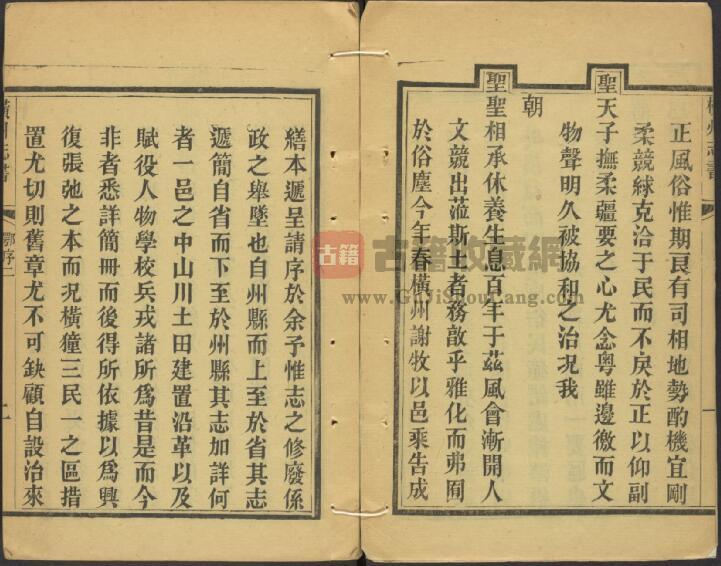 橫州志書
正風俗惟期良有司相地勢酌機宜剛
柔競絿克洽于民而不戾於正以仰副
聖天子撫柔疆要之心尤念粵雖邊徼而文
物聲明久被協和之治况我
朝
聖聖相承休養生息百年于茲風會漸開人
文競出蒞斯土者務敦乎雅化而弗囿
於俗塵今年春橫州謝牧以邑乘告成
繕本遞呈請序於余予惟志之修廢係
政之舉墜也自州縣而上至於省其志
遞簡自省而下至於州縣其志加詳何
者一邑之中山川土田建置沿革以及
賦役人物學校兵戎諸所爲昔是而今
非者悉詳簡冊而後得所依據以爲興
復張弛之本而况橫獞三民一之區措
置尤切則舊章尤不可缺顧自設治來
橫州志書
鄂序二
古籍
古籍收藏網
www.GuJiShouCang.com